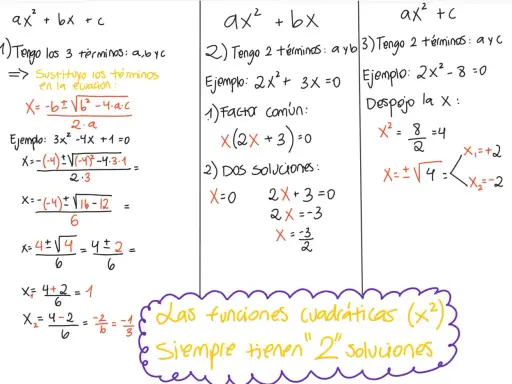 ax² + bx + c
1) Tengo los 3 términos: a, b y c
=> Sustituyo los términos
en la ecuación:
X = -b ± √b² - 4·a·c
2·a
Ejemplo: 3x² - 4x + 1 = 0
X = -(-4) ± √(-4)² - 4·3·1 =
2·3
X = -(-4) ± √16 - 12 =
6
X = 4 ± √4 = 4 ± 2 =
6 6
X₁ = 4 + 2 = 1
6
X₂ = 4 - 2 = -2 = -1
6 6 3
ax² + bx
2) Tengo 2 términos: a y b
Ejemplo: 2x² + 3x = 0
1) Factor común:
X(2X + 3) = 0
2) Dos soluciones:
X = 0 2X + 3 = 0
2X = -3
X = -3
2
ax² + c
3) Tengo 2 términos: a y c
Ejemplo: 2x² - 8 = 0
Despejo la X:
X² = 8 = 4
2
X = ± √4 =
X₁ = +2
X₂ = -2
Las funciones cuadráticas (x²)
Siempre tienen "2" soluciones